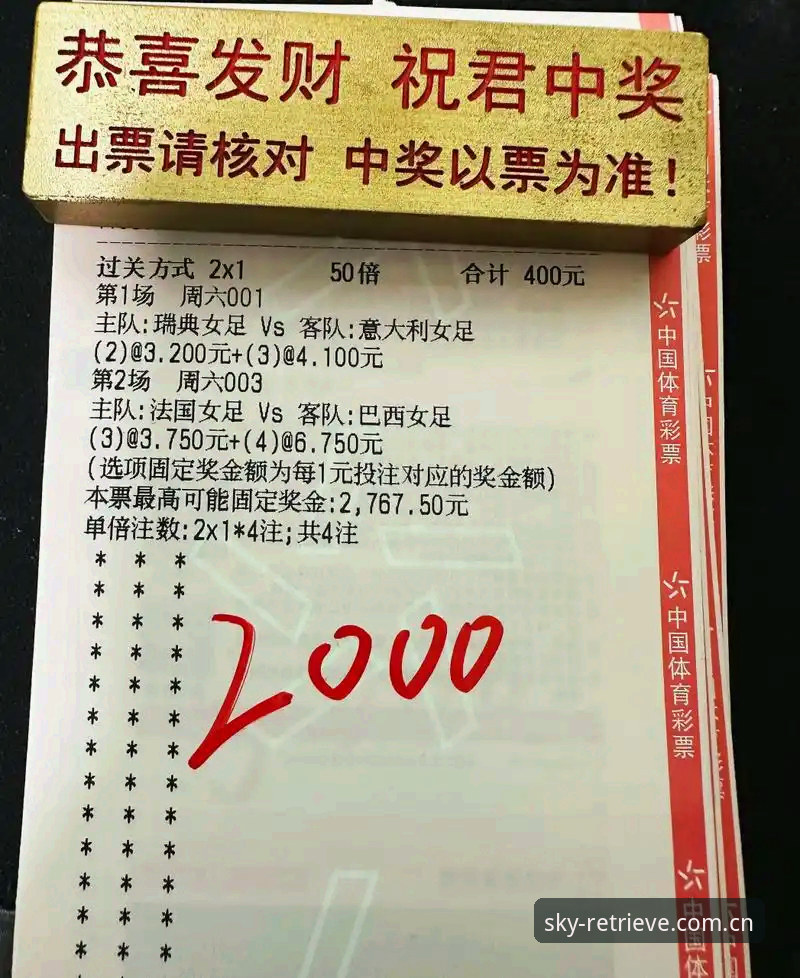 恭喜发财 祝君中奖
出票请核对 中奖以票为准！
过关方式 2x1 50倍 合计 400元
第1场 周六001
主队:瑞典女足 Vs 客队:意大利女足
(2)@3.200元+(3)@4.100元
第2场 周六003
主队:法国女足 Vs 客队:巴西女足
(3)@3.750元+(4)@6.750元
(选项固定奖金额为每1元投注对应的奖金额)
本票最高可能固定奖金:2,767.50元
单倍注数:2x1*4注;共4注
* * *
* * *
* * *
* * *
* * *
* * *
* * *
* * *
* * *
* * *
* * *
* * *
* * *
2000
中国体育彩票
中国体育彩票
中国体
sky-retrieve.com.cn